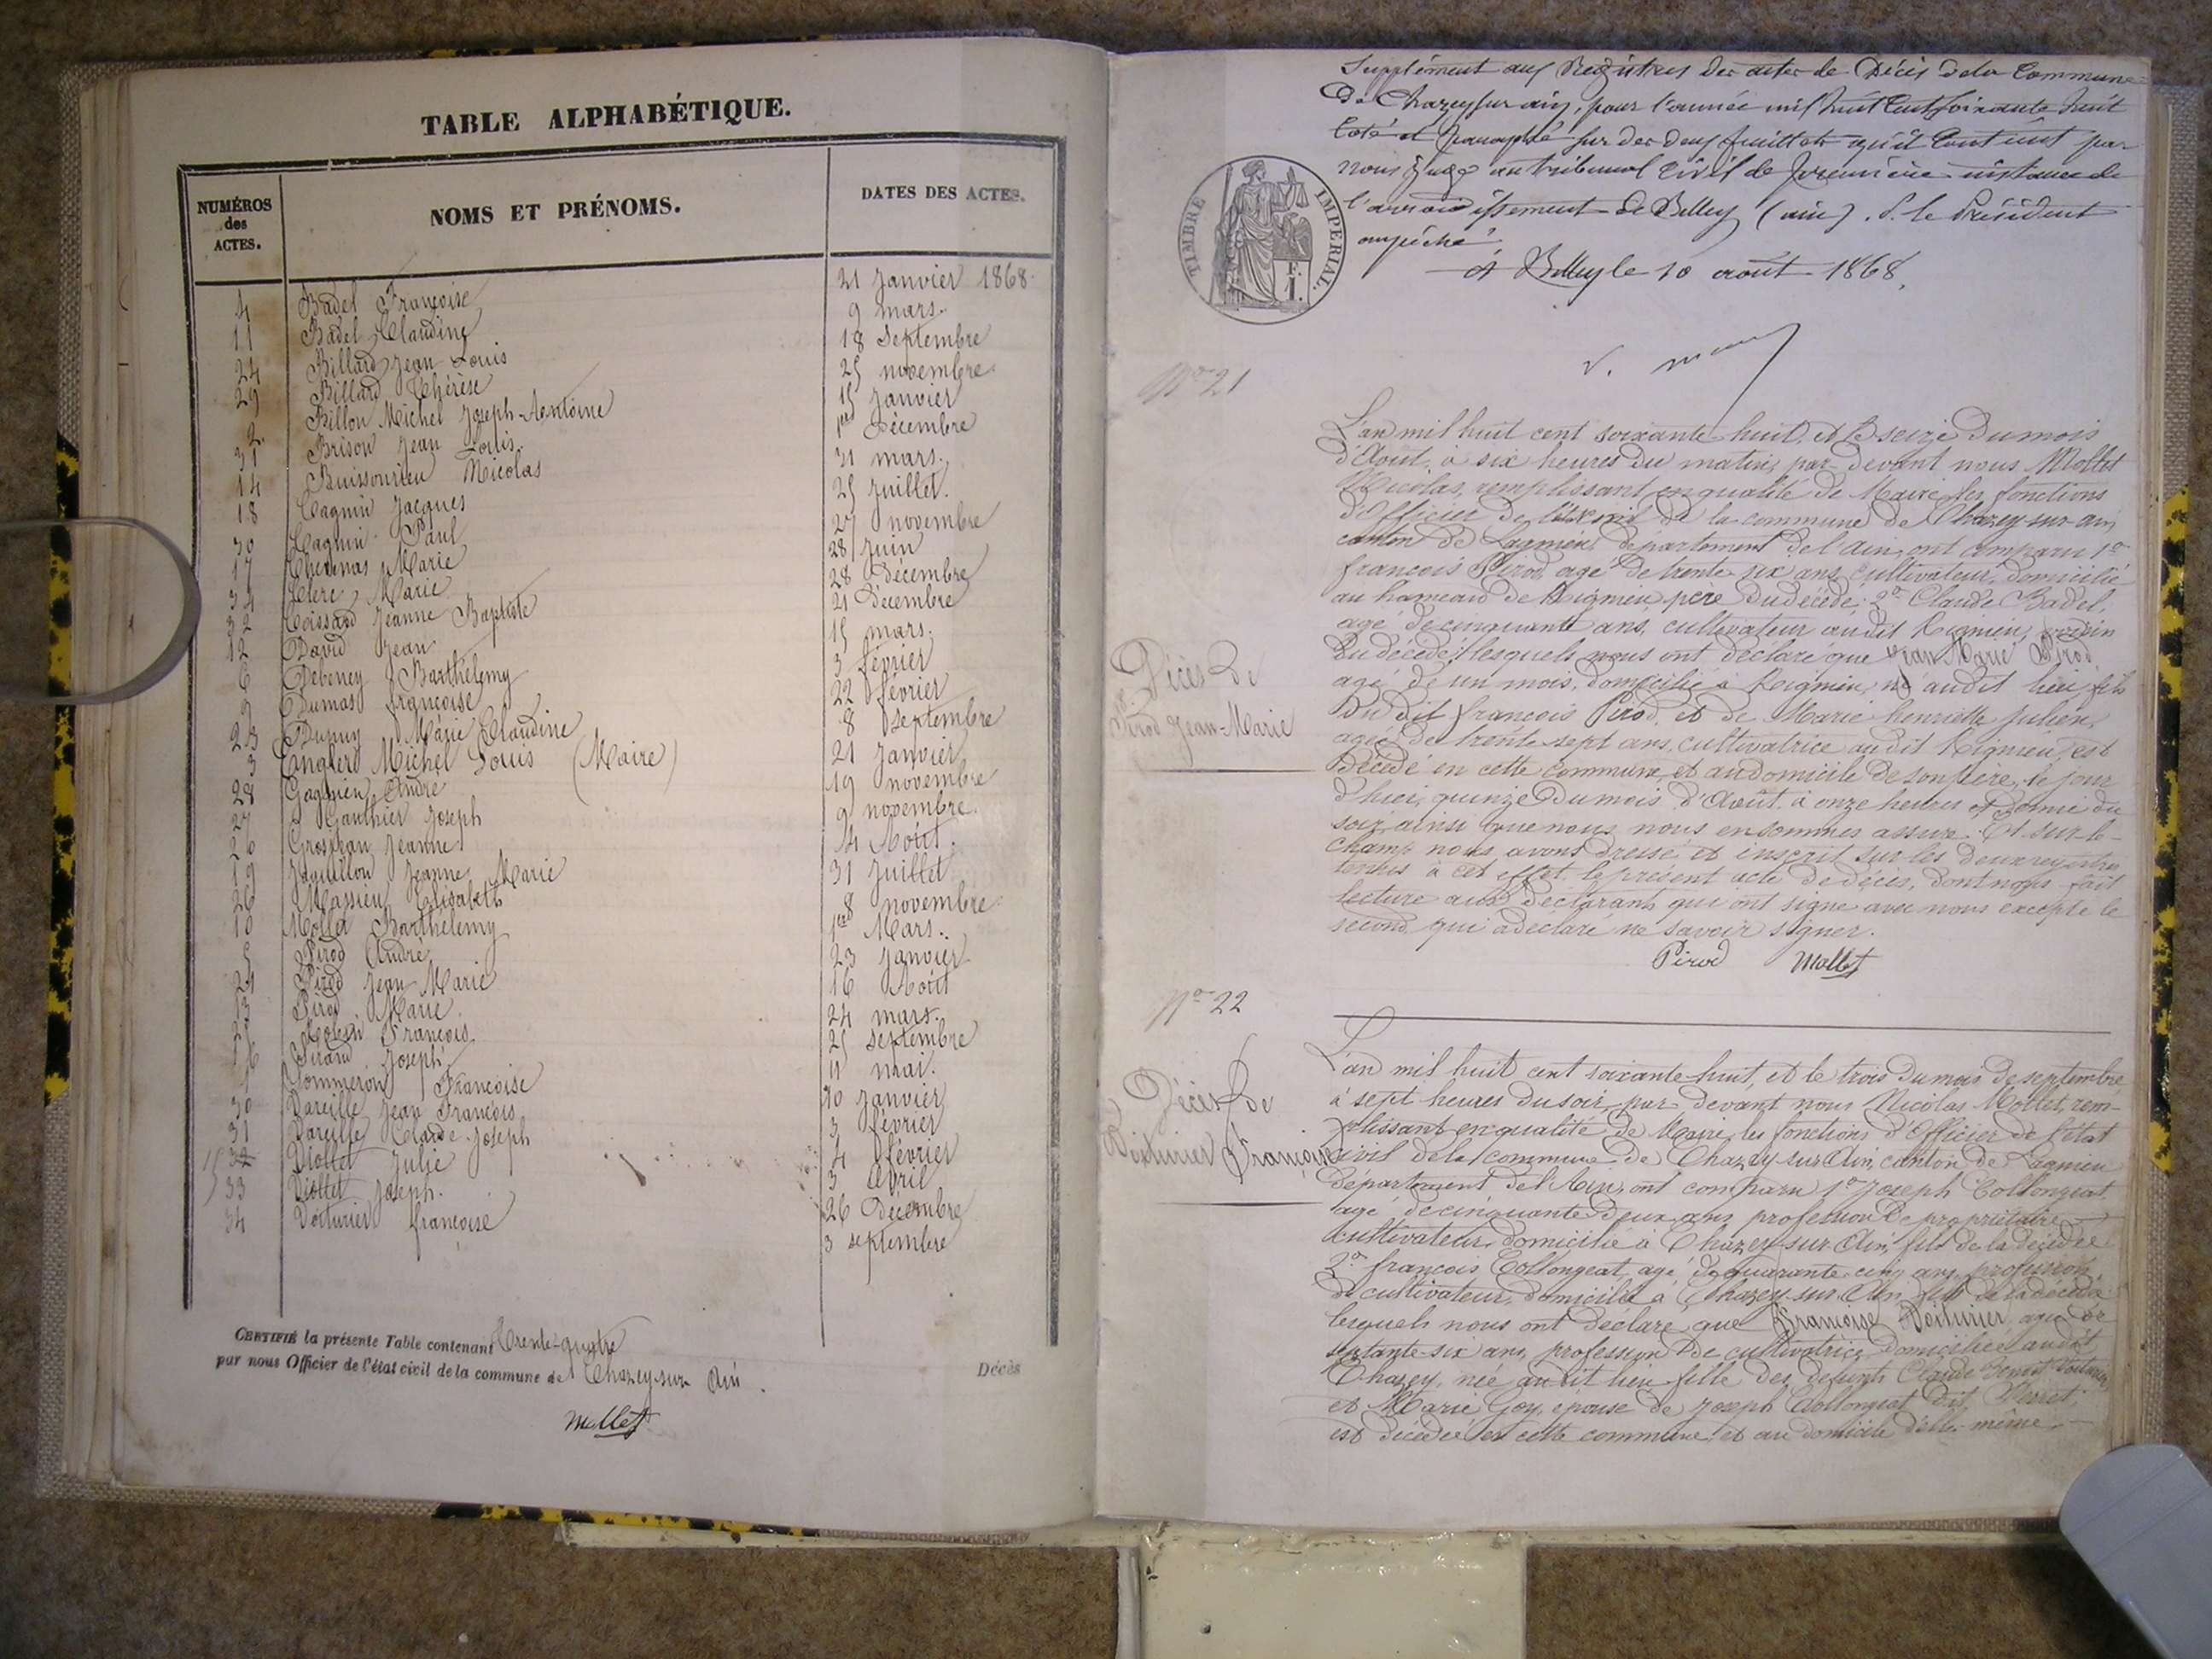 TABLE ALPHABÉTIQUE.
NUMÉROS des ACTES.
NOMS ET PRÉNOMS.
DATES DES ACTES.
4 Badel Françoise 21 Janvier 1868
11 Badel Claudine 9 mars.
24 Billard Jean Louis 18 Septembre
29 Billard Thérèse 25 novembre
2 Billon Michel Joseph-Antoine 15 Janvier
31 Brison Jean Louis 1er Décembre
14 Buissonrieu Nicolas 31 mars.
18 Cagnin Jacques 25 Juillet.
30 Cagnin Paul 27 novembre
17 Marie 28 Juin
34 Clerc Marie 28 Décembre
32 Coissard Jeanne Baptiste 21 Décembre
12 David Jean 15 mars.
6 Debeney Barthélemy 3 février
9 Dumas françoise 22 février
23 Dupuy Marie Claudine 8 Septembre
3 Michel Louis (Maire) 21 Janvier
28 Gagnieu André 19 novembre
27 Gauthier Joseph 9 novembre.
20 Grosjean Jeanne 14 Août.
19 Jeanne Marie 31 Juillet
26 Massieu Elisabeth 8 novembre
10 Mollet Barthélemy 1er Mars.
5 Pirod André 23 Janvier
21 Pirod Jean Marie 16 Août
13 Pirod Marie 24 mars.
25 Robin François 25 Septembre
16 Sirand Joseph 11 mai.
1 Sommeron Françoise 10 Janvier
30 Vareille Jean François 3 février
31 Vareille Claude-Joseph 4 février
15 Viollet Julie 3 Avril
33 Viollet Joseph. 26 Décembre
34 Voiturier françoise 3 septembre
CERTIFIÉ la présente Table contenant Trente-quatre
Décès
par nous Officier de l'état civil de la commune de Chazey-sur Ain.
Mollet
Supplément aux Registres des actes de Décès de la Commune
de Chazey sur ain, pour l'année mil huit cent soixante huit
Coté et paraphé sur des deux feuillets qu'il contient par
nous Juge au tribunal Civil de première instance de
l'arrondissement de Belley (ain). P. le Président
empêché.
A Belley le 10 août 1868.
TIMBRE IMPERIAL.
No 21
Décès de
Pirod Jean-Marie
L'an mil huit cent soixante huit, et le seize du mois
d'Août, à six heures du matin, par devant nous Mollet
Nicolas, remplissant en qualité de Maire les fonctions
d'Officier de l'état civil de la commune de Chazey-sur-ain,
canton de Lagnieu, département de l'ain, ont comparu 1o
françois Pirod, agé de trente six ans, cultivateur, domicilié
au hameau de Rignieu, père du décédé; 2o Claude Badel,
agé de cinquante ans, cultivateur audit Rignieu, voisin
du décédé; lesquels nous ont déclaré que Jean Marie Pirod,
agé de un mois, domicilié à Rignieu, né audit lieu, fils
du dit françois Pirod, et de Marie henriette Julien,
agée de trente sept ans, cultivatrice audit Rignieu, est
décédé en cette commune, et au domicile de son père, le jour
d'hier, quinze du mois d'Août, à onze heures et demie du
soir, ainsi que nous nous en sommes assuré. Et sur-le-
champ nous avons dressé et inscrit sur les deux registres
tenus à cet effet, le présent acte de décès, dont nous fait
lecture aux déclarants qui ont signé avec nous excepté le
second qui a déclaré ne savoir signer.
Pirod Mollet
No 22
Décès de
Voiturier Françoise
L'an mil huit cent soixante-huit, et le trois du mois de septembre
à sept heures du soir, par devant nous Nicolas Mollet, rem-
plissant en qualité de Maire, les fonctions d'Officier de l'état
civil de la commune de Chazey-sur-Ain, canton de Lagnieu
département de l'Ain, ont comparu 1o Joseph Collongeat,
agé de cinquante deux ans, profession de propriétaire
cultivateur, domicilié à Chazey-sur-Ain, fils de la décédée
2o françois Collongeat, agé de quarante-cinq ans, profession
de cultivateur, domicilié à Chazey-sur-Ain, fils de la décédée
lesquels nous ont déclaré que Françoise Voiturier, agée de
septante-six ans, profession de cultivatrice, domiciliée audit
Chazey, née audit lieu, fille des défunts Claude Benoit Voiturier
et Marie Goy, épouse de Joseph Collongeat dit
est décédée en cette commune, et au domicile d'elle-même